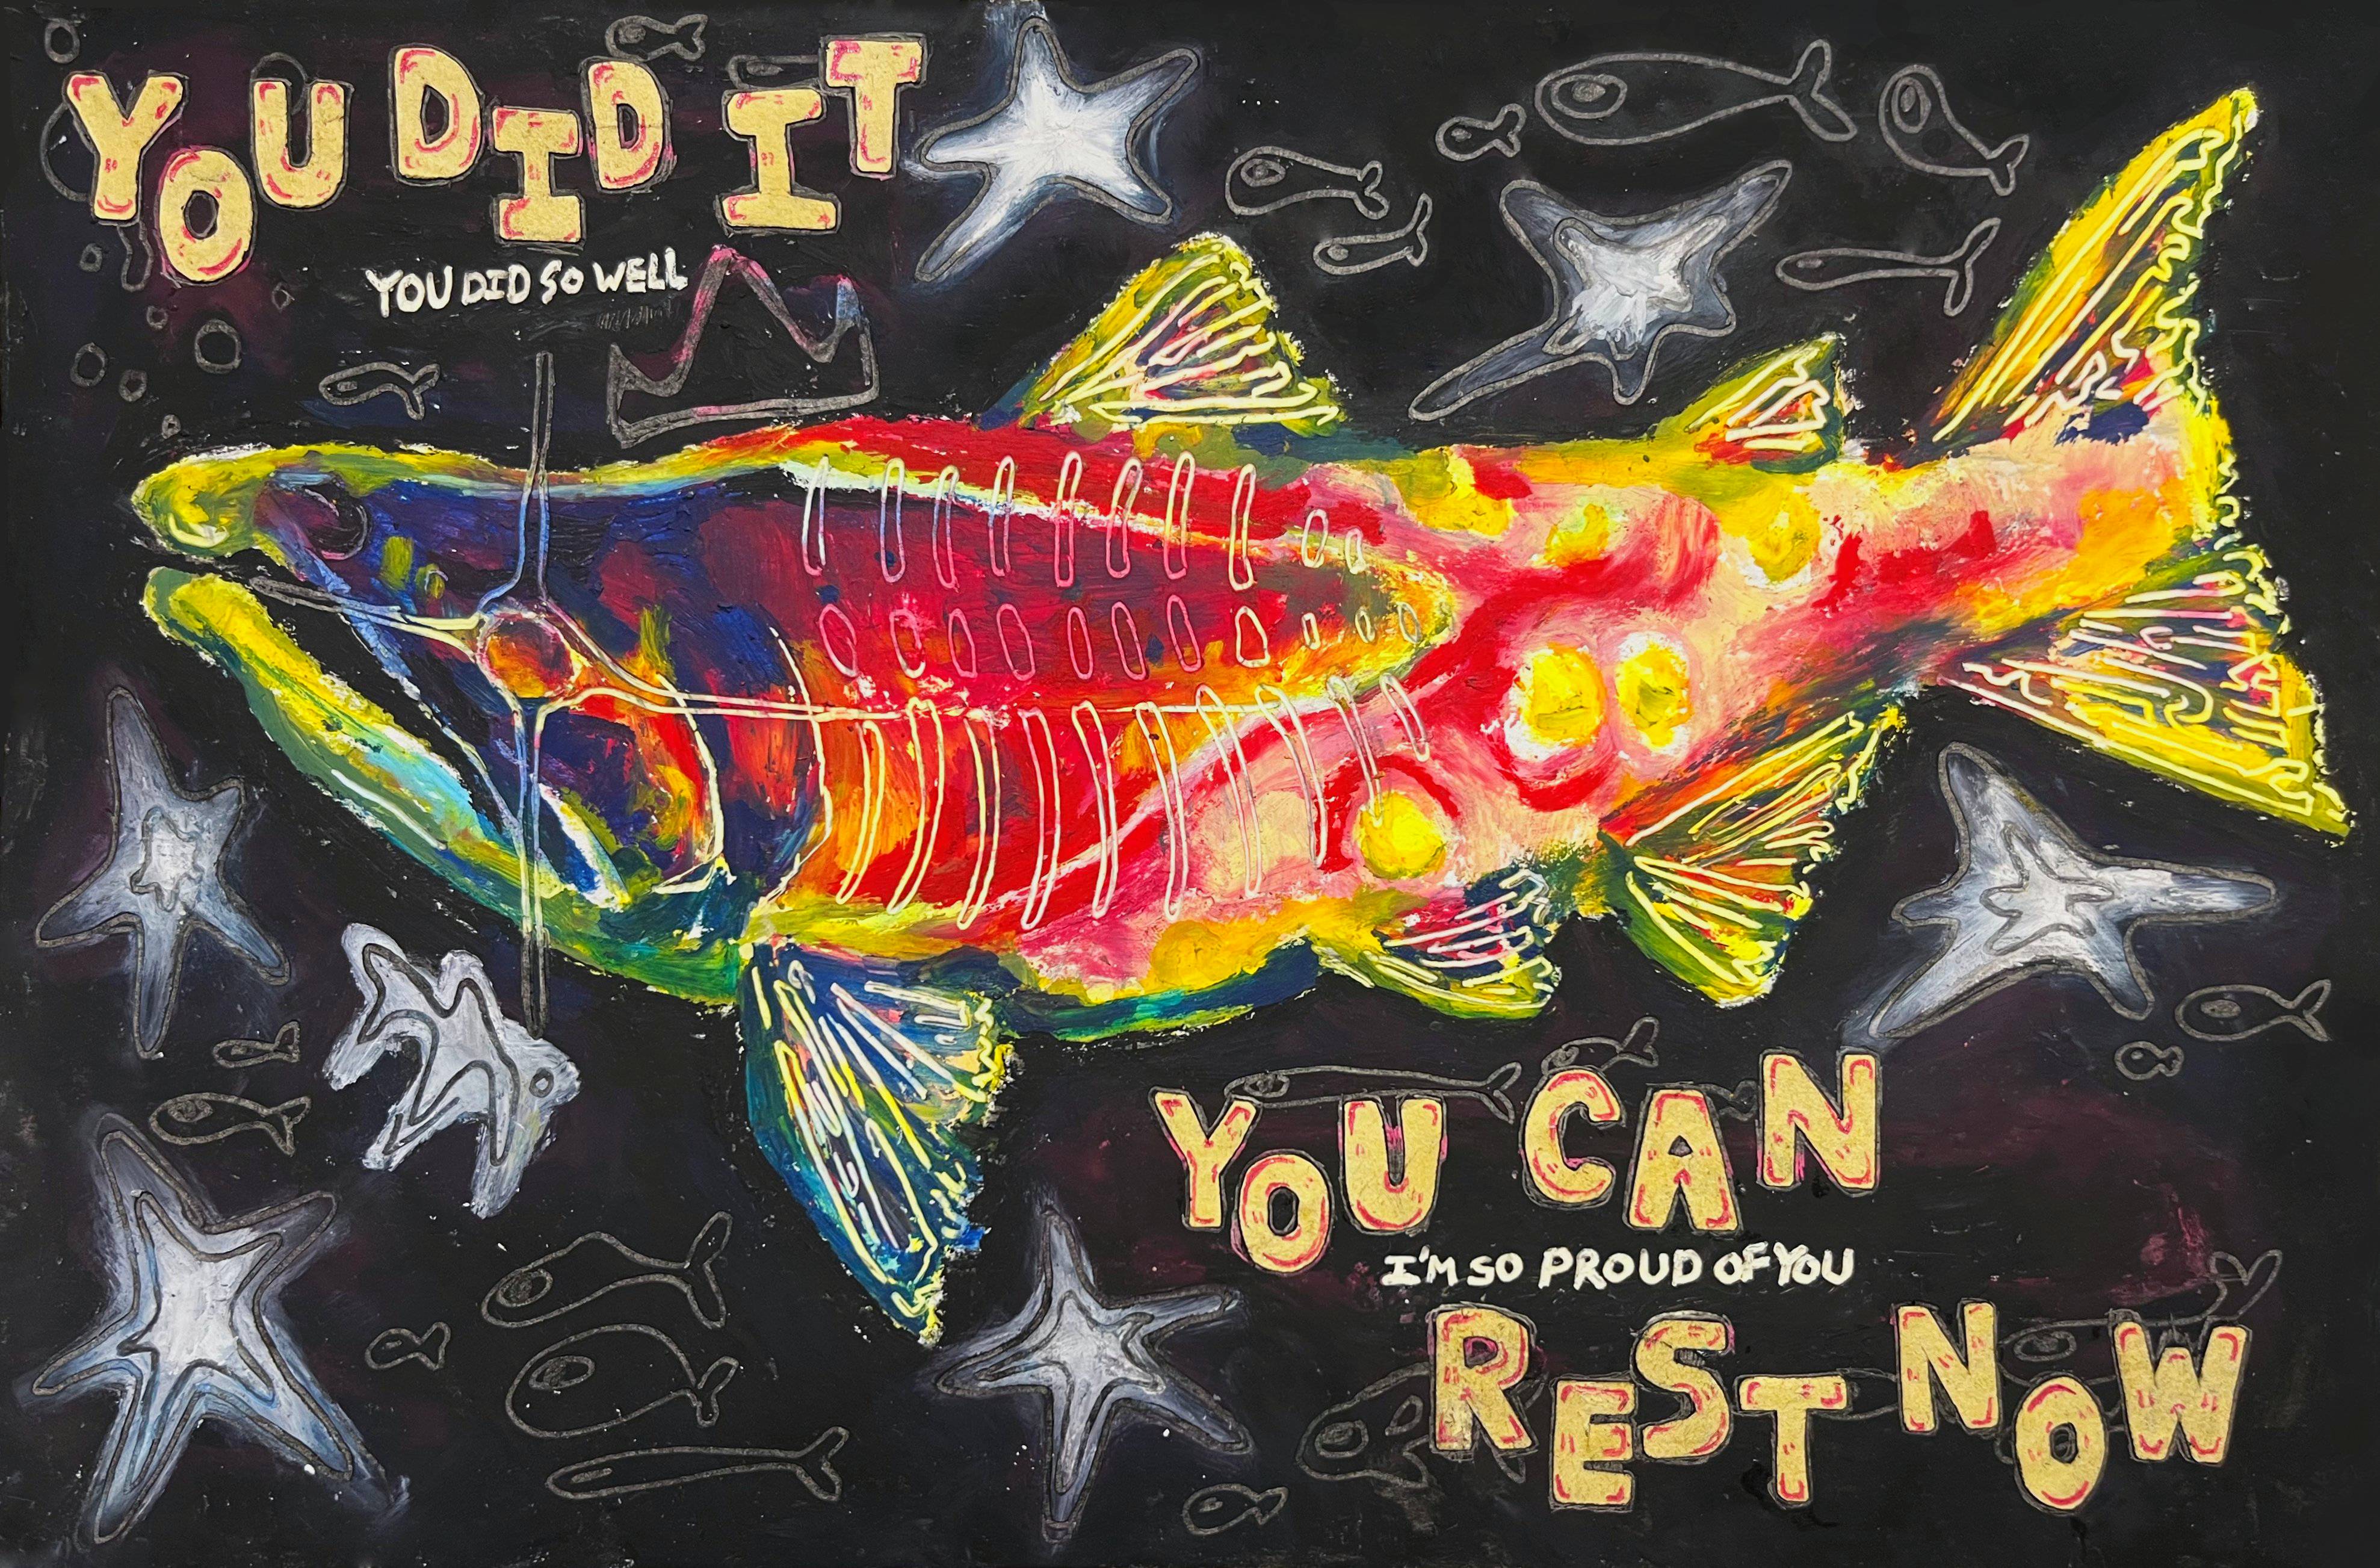 YOU DID IT
YOU DID SO WELL
YOU CAN
I'M SO PROUD OF YOU
REST NOW